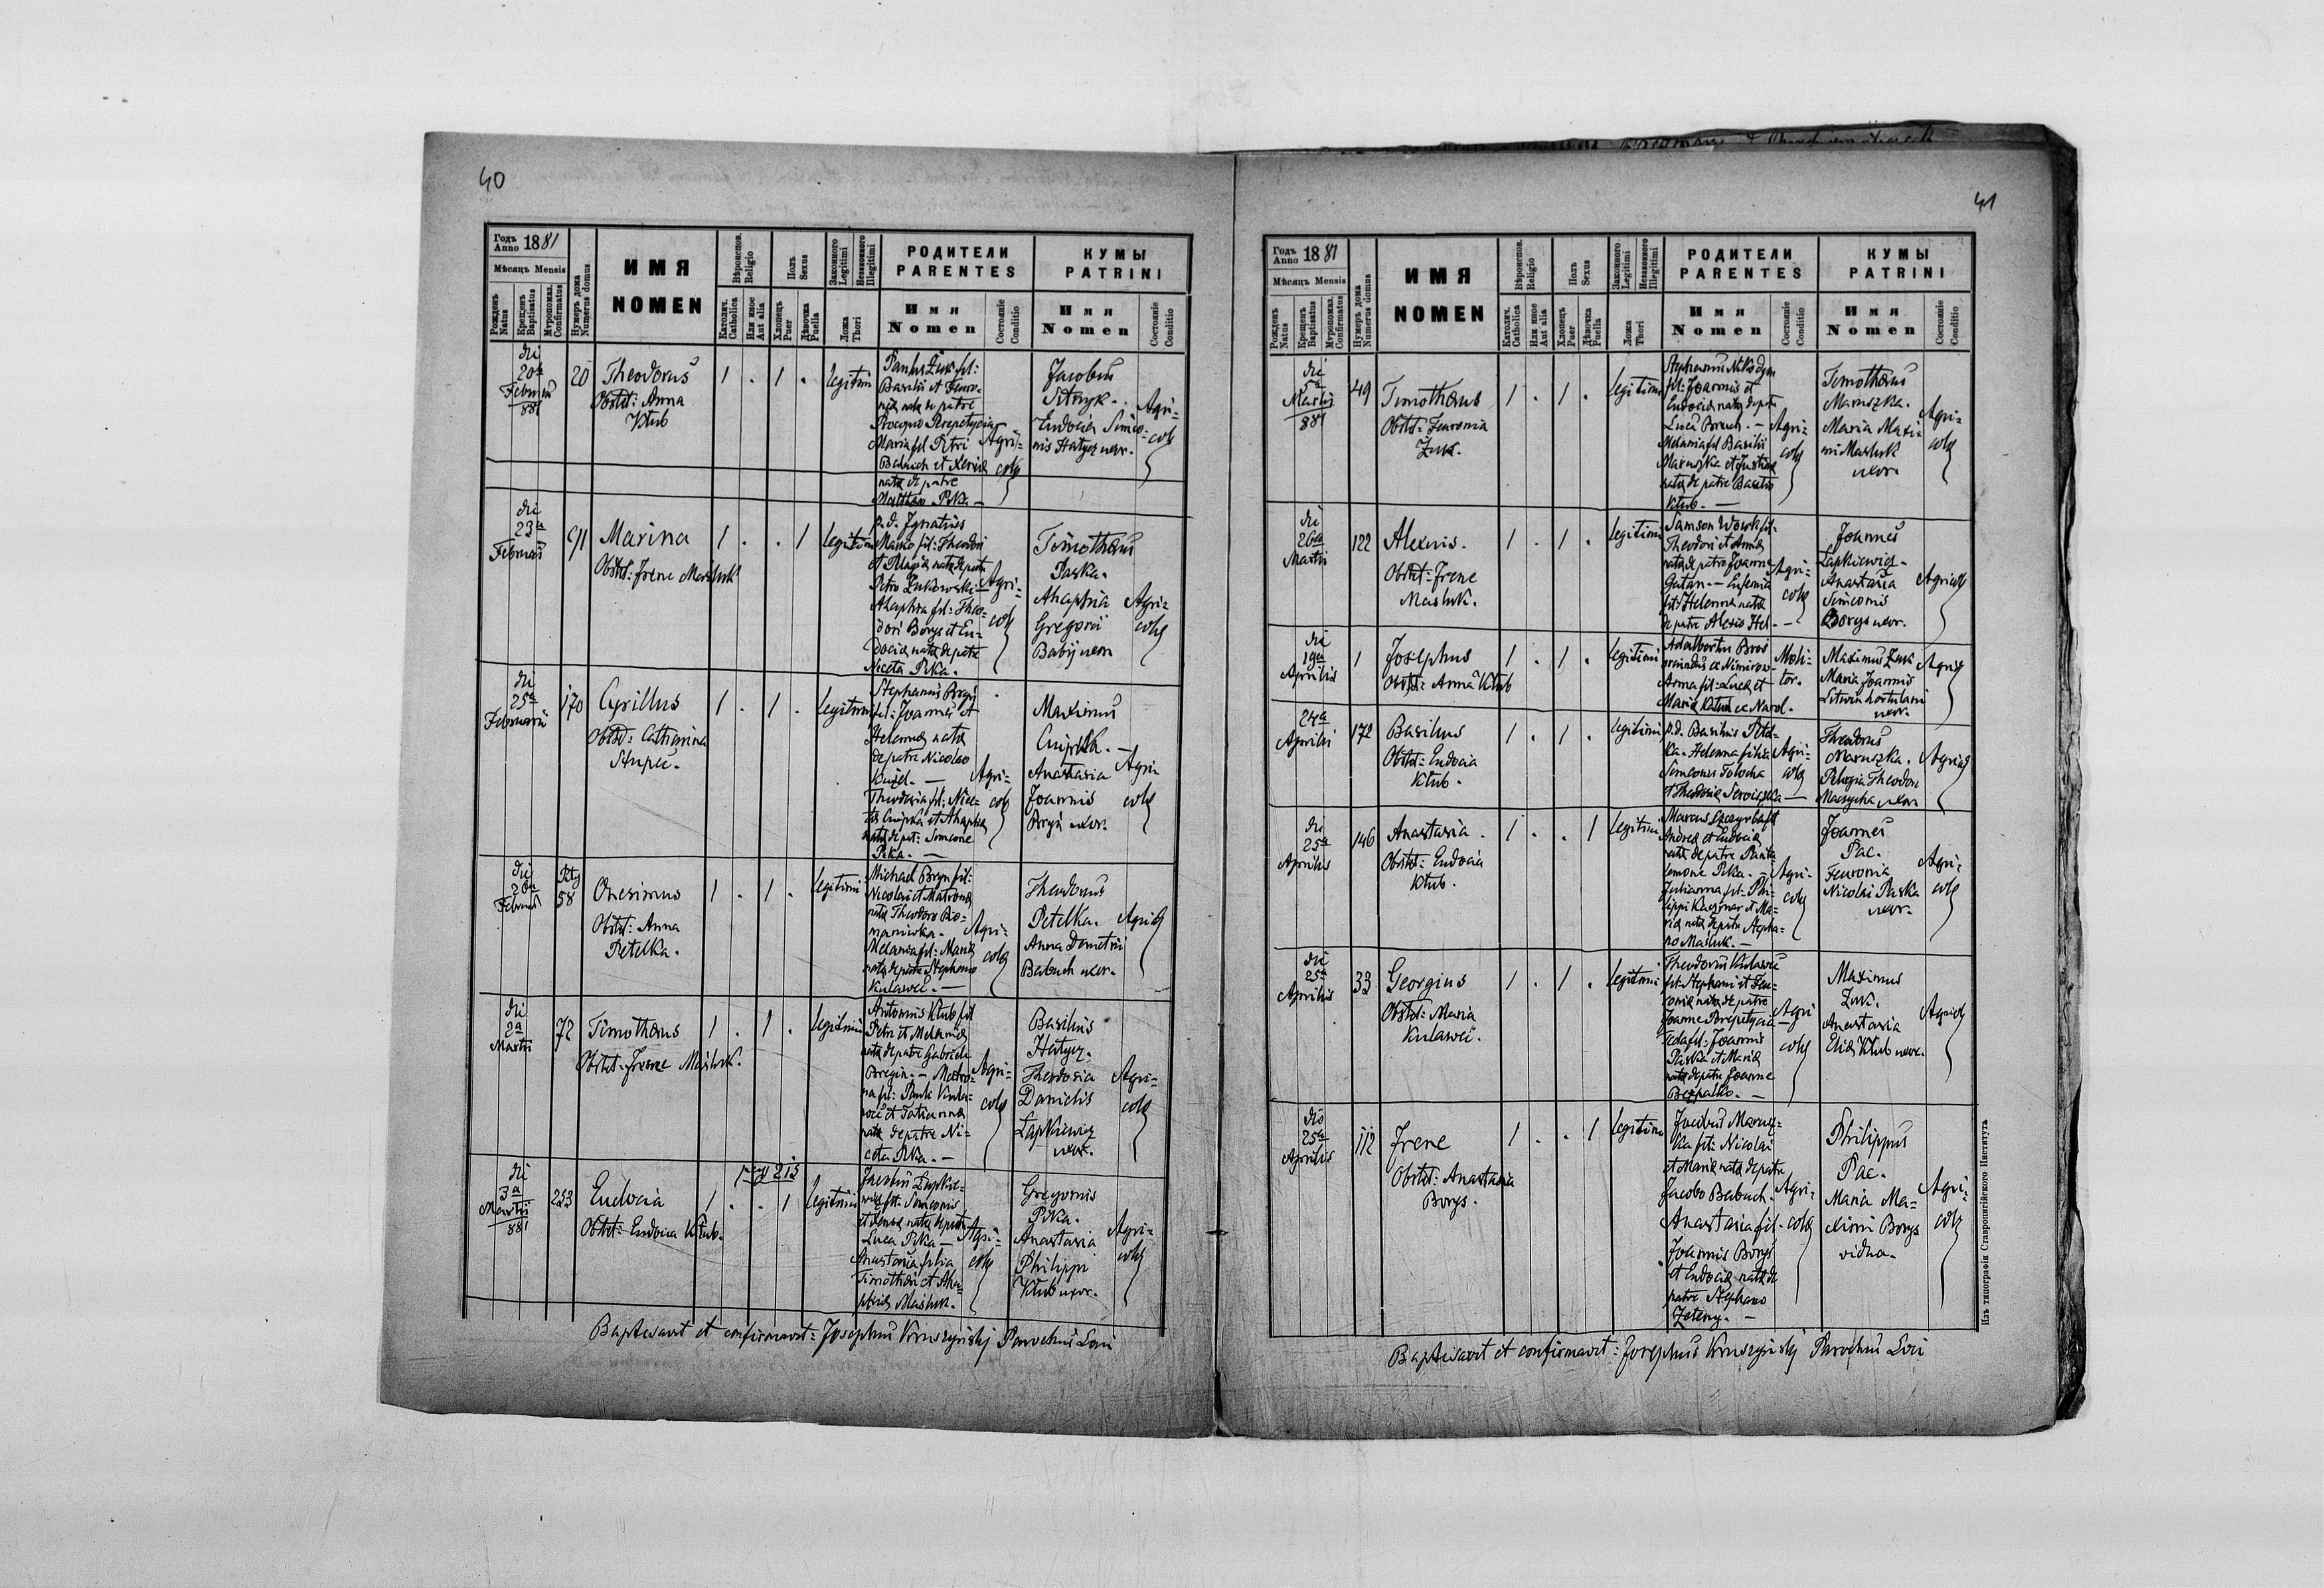 40
Годъ Anno 1881
Мѣсяцъ Mensis
Рожденъ Natus
Крещенъ Baptisatus
Мѵропомаз. Confirmatus
Нумеръ дома Numerus domus
ИМЯ
NOMEN
Вѣроиспов. Religio
Католич. Catholica
Или иное Aut alia
Полъ Sexus
Хлопець Puer
Дѣвочка Puella
Законного Legitimi
Незаконного Illegitimi
Ложа Thori
РОДИТЕЛИ
PARENTES
Имя
Nomen
Состояніе Conditio
КУМЫ
PATRINI
Имя
Nomen
Состояніе Conditio
die
20a
Februarii
881
20
Theodorus
Obstet: Anna
Kłub
1 . 1 .
legitimi
Paulus Żuk fil:
Basilii et Feuro-
nia nata de patre
Procopio Perepetycia
Maria fil Petri
Babuch et Xenia
nata de patre
Matthaeo Pika —
Agri-
colae
Jacobus
Petryk.
Eudocia Simeo-
nis Hałycz uxor.
Agri-
colae
die
23a
Februarii
91
Marina
Obstet: Irene Masluk
1 . . 1
legitimi
p. d. Ignatius
fil: Theodori
et Pelagia nata de patre
Petro Żukowski —
Ahaphia fil: Theo-
dori Borys et Eu-
docia nata de patre
Niceta Pika.
Agri-
colae
Timotheus
Paska.
Ahaphia
Gregorii
Babij uxor
Agri-
colae
die
25a
Februarii
170
Cyrillus
Obstet: Catharina
Stupu.
1 . 1 .
legitimi
Stephanus Bryn
fil: Joannis et
Helenna nata
de patre Nicolao
Theodosia fil: Nice-
et Ahaphia
nata de patre Simeone
Pika. —
Agri-
colae
Maximus
Anastasia
Joannis
Bryn uxor.
Agri-
colae
die
26a
Februarii
58
Onesimus
Obstet: Anna
Petelka.
1 . 1 .
legitimi
Michael Bryn fil:
Nicolai et Matrona
nata Theodoro Ro-
maniwka.
Melania fil: Maria
nata de patre Stephano
Kulaweć. —
Agri-
colae
Theodorus
Petelka.
Anna Demetrii
Babuch uxor.
Agricolae
die
2a
Martii
72
Timotheus
Obstet. Irene Masluk.
1 . 1 .
legitimi
Antonius Kłub fil
Petri et Melania
nata de patre Gabriele
Bregin. — Matro-
na fil: Pauli Kula-
weć et Tatianna
nata de patre Ni-
ceta Pika. —
Agri-
colae
Basilius
Hałycz.
Theodosia
Danielis
Łapkiewicz
uxor.
Agri-
colae
die
3a
Martii
881
253
Eudocia
Obstet: Eudocia Kłub.
1 . . 1
legitimi
Jacobus Łapkie-
wicz fil: Simeonis
nata de patre
Luca Pika —
Anastasia filia
Timothei et Aha-
phia Masluk.
Agri-
colae
Gregorius
Pika.
Anastasia
Philippi
Kłub uxor.
Agri-
colae
Baptisavit et confirmavit: Josephus Kruszyńskij Parochus Loci
41
Годъ Anno 1881
Мѣсяцъ Mensis
Рожденъ Natus
Крещенъ Baptisatus
Мѵропомаз. Confirmatus
Нумеръ дома Numerus domus
ИМЯ
NOMEN
Вѣроиспов. Religio
Католич. Catholica
Или иное Aut alia
Полъ Sexus
Хлопець Puer
Дѣвочка Puella
Законного Legitimi
Незаконного Illegitimi
Ложа Thori
РОДИТЕЛИ
PARENTES
Имя
Nomen
Состояніе Conditio
КУМЫ
PATRINI
Имя
Nomen
Состояніе Conditio
die
5a
Martii
881
49
Timotheus
Obstet: Feuronia
Żuk.
1 . 1 .
legitimi
Stephanus
fil: Joannis et
Eudocia nata de patre
Luca —
Melania fil Basilii
Maruszka et Justina
nata de patre Basilio
Kłub. —
Agri-
colae
Timotheus
Maruszka.
Maria Maxi-
mi Masluk
uxor
Agri-
colae
die
26a
Martii
122
Alexius.
Obstet: Irene
Masluk.
1 . 1 .
legitimi
Samson Wowk fil.
Theodori et Anna
nata de patre Joanne
Gałan. — Eufemia
fil: Helenna nata
de patre Alexio Hel. —
Agri-
colae
Joannes
Łapkiewicz.
Anastasia
Simeonis
Borys uxor.
Agricolae
die
19a
Aprilis
1
Josephus
Obstet: Anna Kłub
1 . 1 .
legitimi
Adalbertus Bros
oriundus ex Nimirow
Anna fil: Luca et
Maria Kłub ex Narol.
Moli-
tor.
Maximus Żuk
Maria Joannis
Litwin hortulani
uxor.
Agricolae
24a
Aprilis
172
Basilius
Obstet: Eudocia
Kłub.
1 . 1 .
legitimi
p. d. Basilius Petel-
ka. Helenna filia
Simeonis Tołocha
et Theodosia —
Agri-
colae
Theodorus
Maruszka.
Pelagia Theodori
uxor
Agricolae
die
25a
Aprilis
146
Anastasia.
Obstet: Eudocia
Kłub.
1 . . 1
legitimi
Marcus Szczyrba fil
Andrea et Eudocia
nata de patre Panta-
lemone Pika. —
Julianna fil: Phi-
lippi Kaczmar et Ma-
ria nata de patre Stepha-
no Masluk. —
Agri-
colae
Joannes
Pac.
Feuronia
Nicolai Paska
uxor.
Agri-
colae
die
25a
Aprilis
33
Georgius
Obstet: Maria
Kulaweć.
1 . 1 .
legitimi
Theodorus Kulaweć
fil: Stephani et Feu-
ronia nata de patre
Joanne Perepetycia —
Tecla fil: Joannis
Paska et Maria
nata de patre Joanne
Bezpałko. —
Agri-
colae
Maximus
Żuk.
Anastasia
Elia Kłub uxor.
Agricolae
die
25a
Aprilis
112
Irene
Obstet: Anastasia
Borys.
1 . . 1
legitimi
Jacobus Marusz-
ka fil: Nicolai
et Maria nata de patre
Jacobo Babuch.
Anastasia fil.
Joannis Borys
et Eudocia nata de
patre Stephano
Zeleny. —
Agri-
colae
Philippus
Pac.
Maria Ma-
ximi Borys
vidua.
Agri-
colae
Baptisavit et confirmavit: Josephus Kruszyńskij Parochus Loci
Изъ типографіи Ставропигійского Института